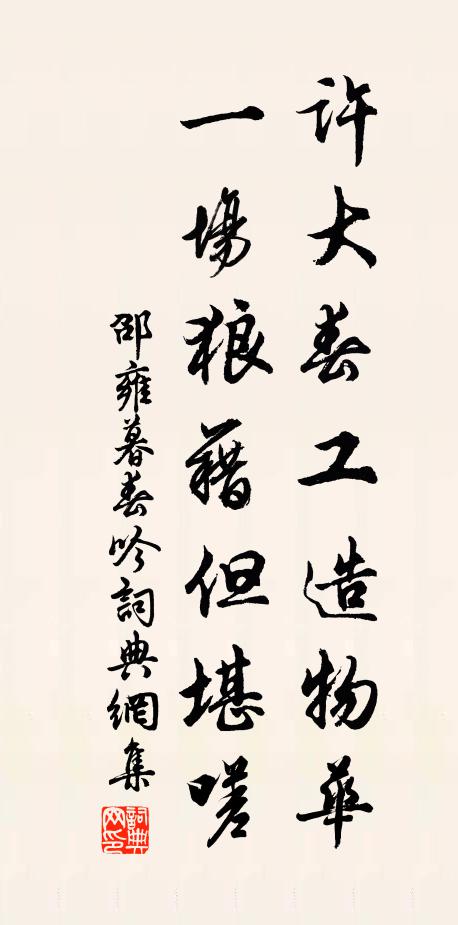 許大春工造物華
一場狼藉但堪嗟
邵雍暮春吟詞典網集
詞典網印